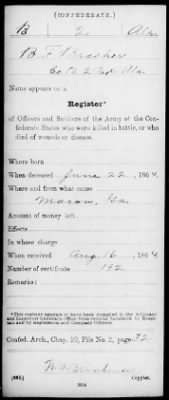 (CONFEDERATE.)
B 2 Ala
B. F. Brasher
Co. 2 Regt. Ala.
Name appears on a
Register*
of Officers and Soldiers of the Army of the Confederate States who were killed in battle, or who died of wounds or disease.
Where born
When deceased June 22, 1864
Where and from what cause
Macon, Ga.
Amount of money left
Effects
In whose charge
When received Aug. 16, 1864
Number of certificate 192
Remarks:
*This register appears to have been compiled in the Adjutant and Inspector General's Office from returns furnished by Hospitals and by Regimental and Company Officers.
Confed. Arch., Chap. 10, File No. 2, page 32
(655) Copyist.